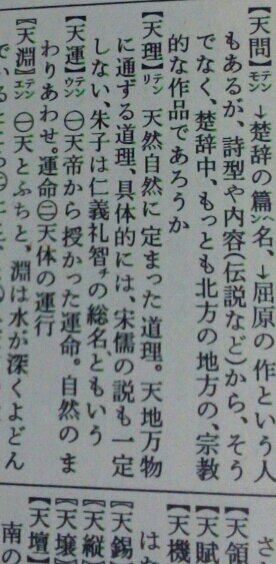 【天問】テンモン →楚辞の篇名、→屈原の作という人
もあるが、詩型や内容(伝説など)から、そう
でなく、楚辞中、もっとも北方の地方の、宗教
的な作品であろうか
【天理】テンリ 天然自然に定まった道理。天地万物
に通ずる道理、具体的には、宋儒の説も一定
しない、朱子は仁義礼智の総名、ともいう
【天運】テンウン ㊀天帝から授かった運命。自然のま
わりあわせ。運命㊁天体の運行
【天淵】テンエン ㊀天とふちと、淵は水が深くよどん
でいるところ
【天領
【天賦
【天機
は
【天錫
【天縦
【天壌
【天壇
南の